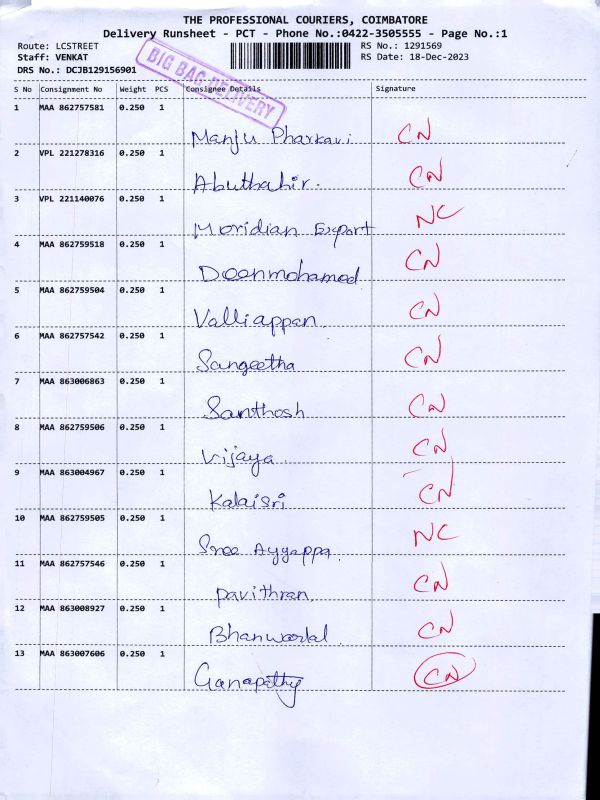 THE PROFESSIONAL COURIERS, COIMBATORE
Delivery Runsheet - PCT - Phone No.:0422-3505555 - Page No.:1
Route: LCSTREET RS No.: 1291569
Staff: VENKAT RS Date: 18-Dec-2023
DRS No.: DCJB129156901
BIG BAG DELIVERY
S No Consignment No Weight PCS Consignee Details Signature
1 MAA 862757581 0.250 1
Manju Pharkavi CN
2 VPL 221278316 0.250 1
Abuthahir. CN
3 VPL 221140076 0.250 1
Moridian Export NC
4 MAA 862759518 0.250 1
Doenmohamed CN
5 MAA 862759504 0.250 1
Valliappan. CN
6 MAA 862757542 0.250 1
Sangeetha CN
7 MAA 863006863 0.250 1
Santhosh CN
8 MAA 862759506 0.250 1
Vijaya. CN
9 MAA 863004967 0.250 1
Kalaisri CN
10 MAA 862759505 0.250 1
Sree Ayyappa. NC
11 MAA 862757546 0.250 1
Pavithran. CN
12 MAA 863008927 0.250 1
Bhanwarlal. CN
13 MAA 863007606 0.250 1
Ganapathy CN